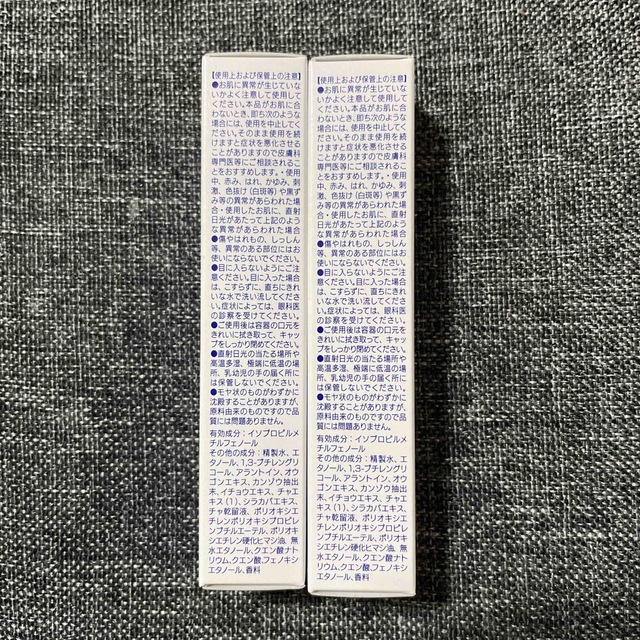 【使用上および保管上の注意】
●お肌に異常が生じていな
いかよく注意して使用して
ください。本品がお肌に合
わないとき、即ち次のような
場合には、使用を中止してく
ださい。そのまま使用を続
けますと症状を悪化させる
ことがありますので皮膚科
専門医等にご相談されるこ
とをおすすめします。・使用
中、赤み、はれ、かゆみ、刺
激、色抜け(白斑等)や黒ず
み等の異常があらわれた場
合・使用したお肌に、直射
日光があたって上記のよう
な異常があらわれた場合
●傷やはれもの、しっしん
等、異常のある部位にはお
使いにならないでください。
●目に入らないようにご注
意ください。目に入った場合
は、こすらずに、直ちにきれ
いな水で洗い流してくださ
い。症状によっては、眼科医
の診察を受けてください。
●ご使用後は容器の口元を
きれいに拭き取って、キャッ
プをしっかり閉めてください。
●直射日光の当たる場所や
高温多湿、極端に低温の場
所、乳幼児の手の届く所に
は保管しないでください。
●モヤ状のものがわずかに
沈殿することがありますが、
原料由来のものですので品
質には問題ありません。
有効成分：イソプロピルメ
チルフェノール
その他の成分：精製水、エ
タノール、1,3-ブチレングリ
コール、アラントイン、オウ
ゴンエキス、カンゾウ抽出
末、イチョウエキス、チャエ
キス(1)、シラカバエキス、
チャ乾留液、ポリオキシエ
チレンポリオキシプロピレ
ンブチルエーテル、ポリオ
キシエチレン硬化ヒマシ油、無
水エタノール、クエン酸ナト
リウム、クエン酸、フェノキシ
エタノール、香料
【使用上および保管上の注意】
●お肌に異常が生じていな
いかよく注意して使用して
ください。本品がお肌に合
わないとき、即ち次のような
場合には、使用を中止してく
ださい。そのまま使用を続
けますと症状を悪化させる
ことがありますので皮膚科
専門医等にご相談されるこ
とをおすすめします。・使用
中、赤み、はれ、かゆみ、刺
激、色抜け(白斑等)や黒ず
み等の異常があらわれた場
合・使用したお肌に、直射
日光があたって上記のよう
な異常があらわれた場合
●傷やはれもの、しっしん
等、異常のある部位にはお
使いにならないでください。
●目に入らないようにご注
意ください。目に入った場合
は、こすらずに、直ちにきれ
いな水で洗い流してくださ
い。症状によっては、眼科医
の診察を受けてください。
●ご使用後は容器の口元を
きれいに拭き取って、キャッ
プをしっかり閉めてください。
●直射日光の当たる場所や
高温多湿、極端に低温の場
所、乳幼児の手の届く所に
は保管しないでください。
●モヤ状のものがわずかに
沈殿することがありますが、
原料由来のものですので品
質には問題ありません。
有効成分：イソプロピルメ
チルフェノール
その他の成分：精製水、エ
タノール、1,3-ブチレングリ
コール、アラントイン、オウ
ゴンエキス、カンゾウ抽出
末、イチョウエキス、チャエ
キス(1)、シラカバエキス、
チャ乾留液、ポリオキシエ
チレンポリオキシプロピレ
ンブチルエーテル、ポリオキ
シエチレン硬化ヒマシ油、無
水エタノール、クエン酸ナト
リウム、クエン酸、フェノキシ
エタノール、香料